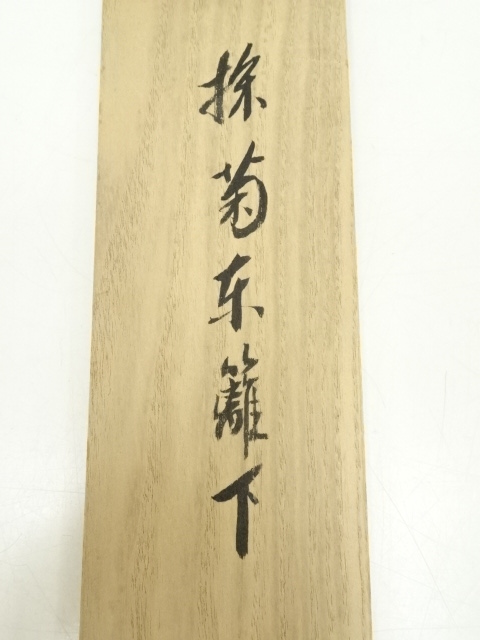 採菊东籬下